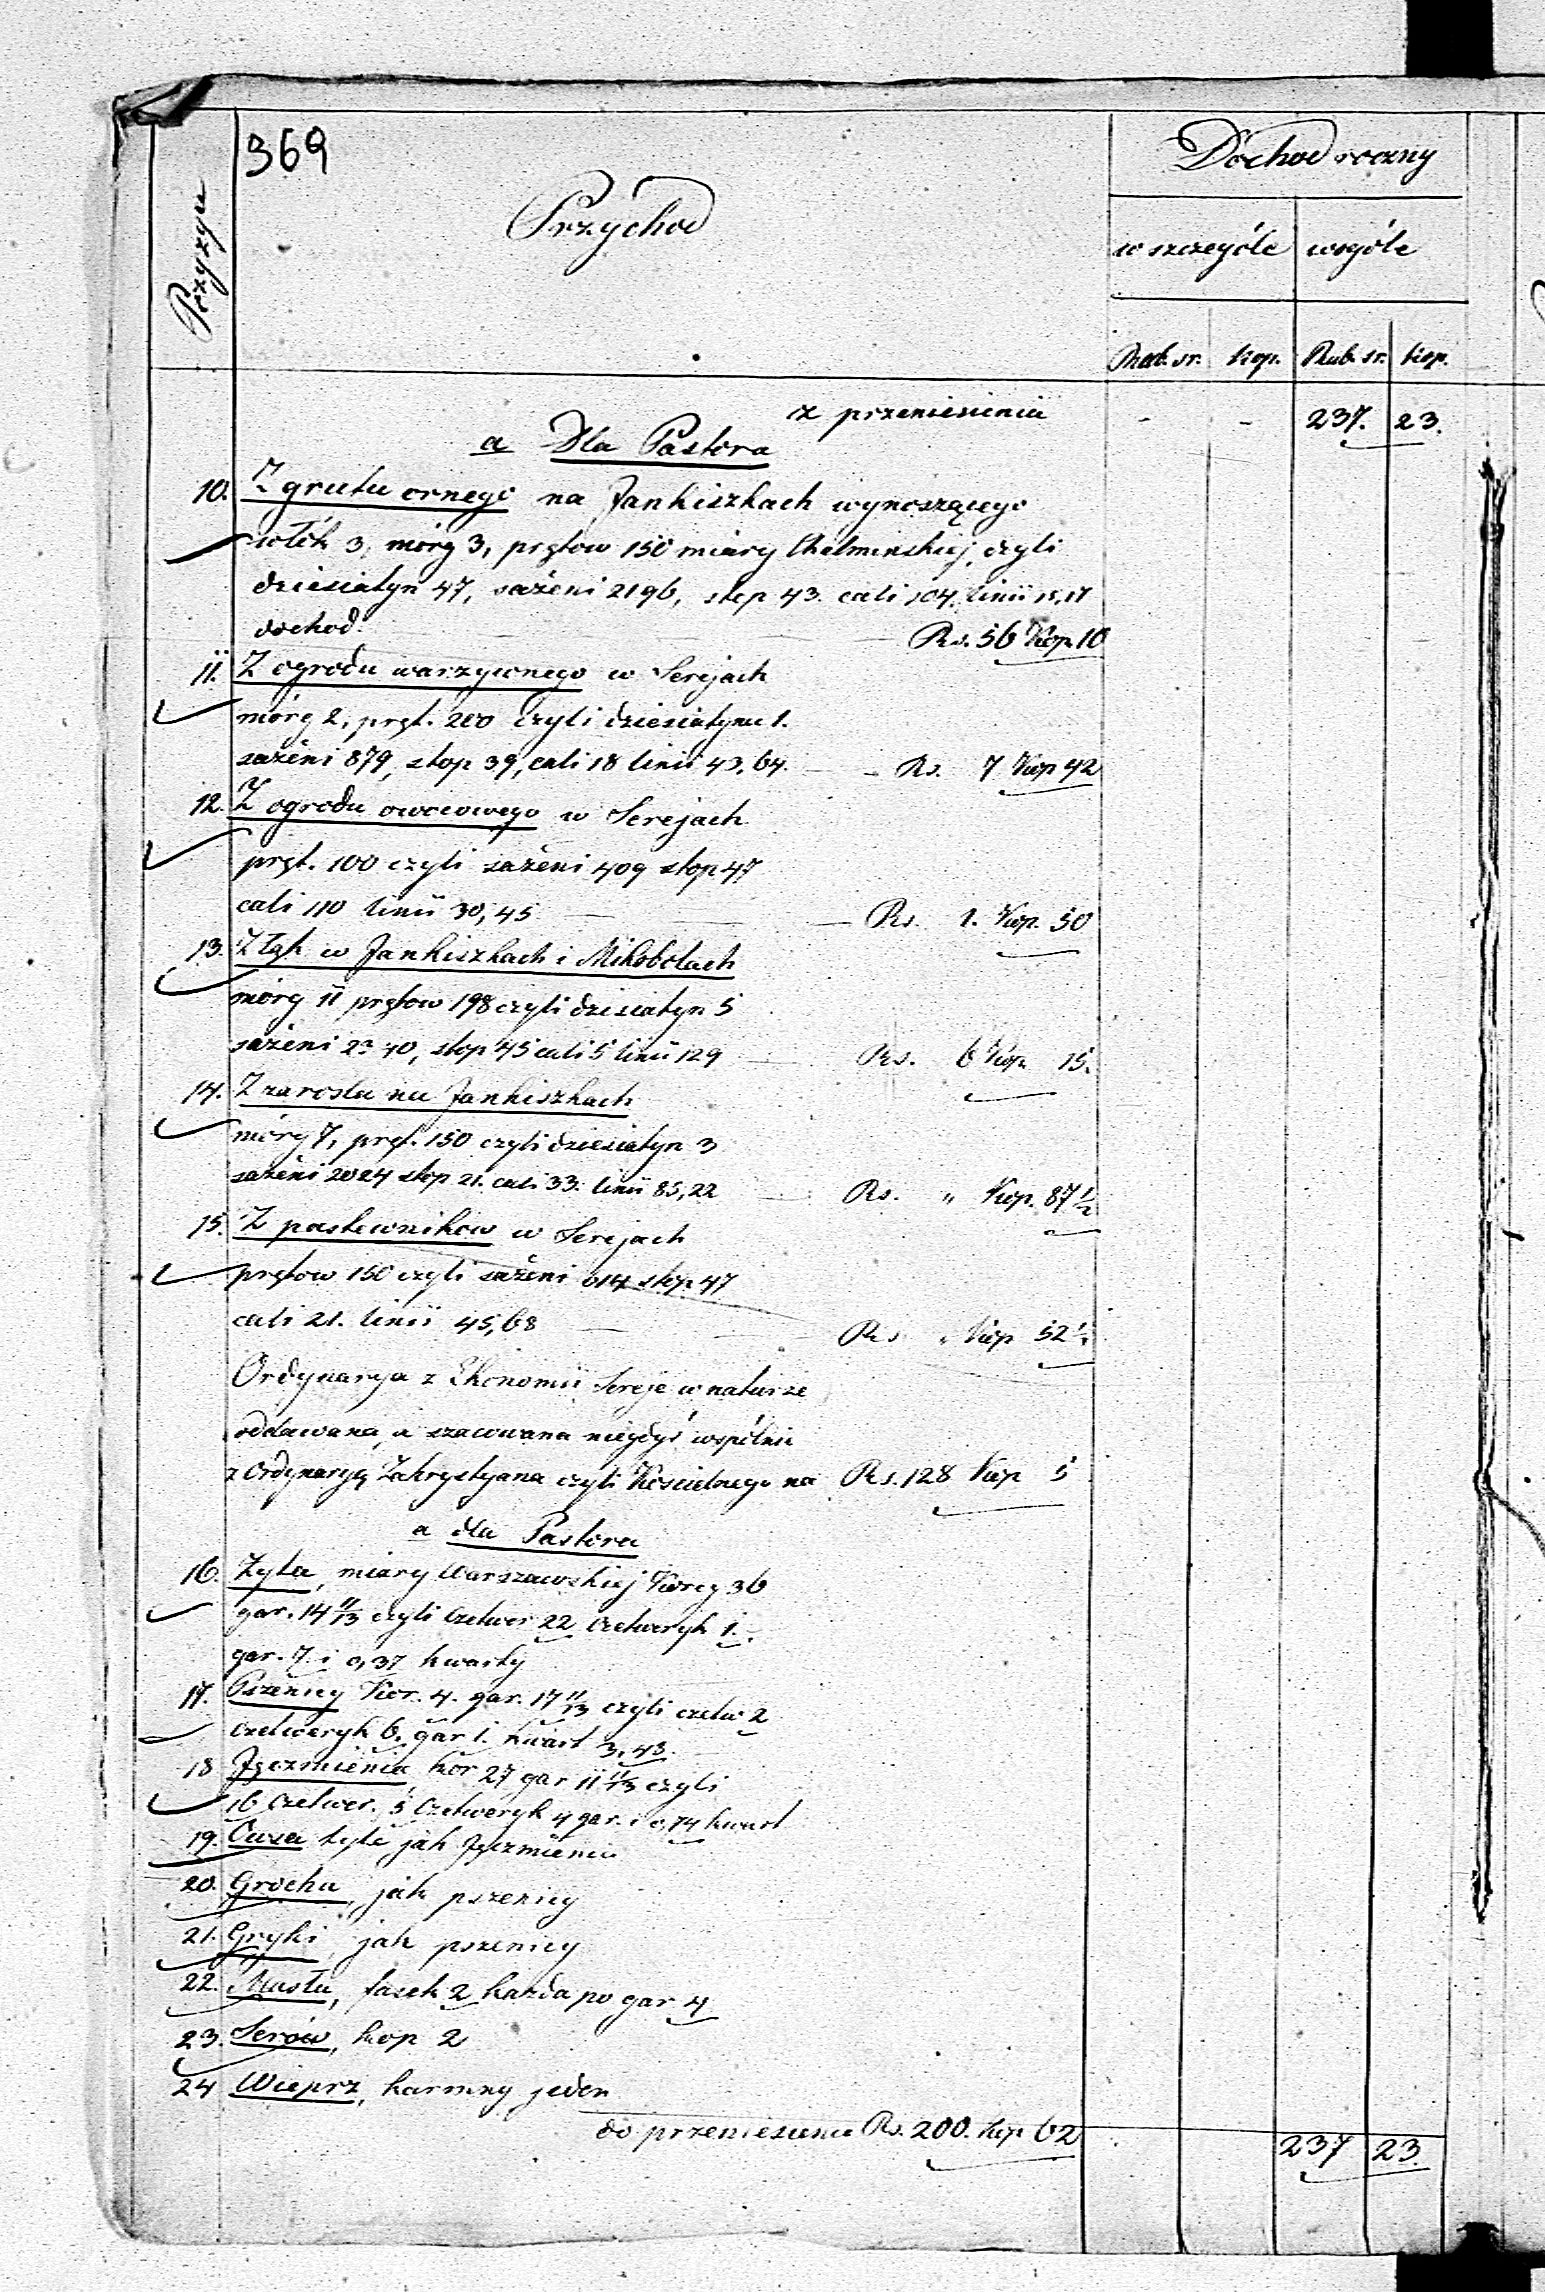 369
Pozycja
Przychod
Dochod roczny
w szczególe
wogóle
Rub. sr. Kop. Rub. sr. Kop.
z przeniesienia - - 237. 23.
a Dla Pastora
10. Z gruntu ornego na Jankiszkach wynoszącego
włók 3, mórg 3, prętow 150 miary Chełminskiej, czyli
dziesiatyn 47, sażeni 2196, stop 43. cali 104. linii 15,17
dochod. Rs. 56 Kop 10
11. Z ogrodu warzywnego w Serejach
mórg 2, pręt. 200 czyli dziesiatynu 1.
sażeni 879, stop 39, cali 18 linii 43,64. Rs. 7 Kop 42
12. Z ogrodu owocowego w Serejach
pręt. 100 czyli sażeni 409 stop 47
cali 110 linii 30,45 Rs. 1. Kop. 50
13. Z łąk w Jankiszkach i Mikabolach
mórg 11 prętow 198 czyli dziesiatyn 5
sażeni stop 45 cali 5 linii 129 Rs. 6 Kop. 15.
14. Z zarostu na Jankiszkach
mórg 7, pręt. 150 czyli dziesiatyn 3
sażeni 2024 stop 21. cali 33. linii 85,22 Rs. " Kop. 87 1/2
15. Z pastewnikow w Serejach
prętow 150 czyli sażeni 614 stop 47
cali 21. linii 45,68 Rs " Kop 52 1/2
Ordynarya z Ekonomii Sereje w naturze
oddawana, a szacowana niegdyś wspólnie
z Ordynaryą Zakrystyana czyli Kościelnego na Rs. 128 Kop 5
a dla Pastora
16. Żyta, miary Warszawskiej Korcy 36
gar. 14 11/13 czyli Czetwer 22 Czetweryk 1.
gar. 7. i 0,37 kwarty
17. Pszenicy Kor. 4. gar. 17 11/13 czyli czetw 2
czetweryk 6. gar 1. kwart 3,43.
18 Jęczmienia, kor 27 gar 11 11/13 czyli
16 Czetwer. 5 Czetweryk 4 gar. i 0,74 kwart
19. Owsa tyle jak Jęczmienia
20. Grochu, jak pszenicy
21. Gryki, jak pszenicy
22. Masła, fasek 2 każda po gar 4
23. Serów, kop 2
24 Wieprz, karmny jeden
do przeniesienia Rs. 200. Kop 62 237 23.